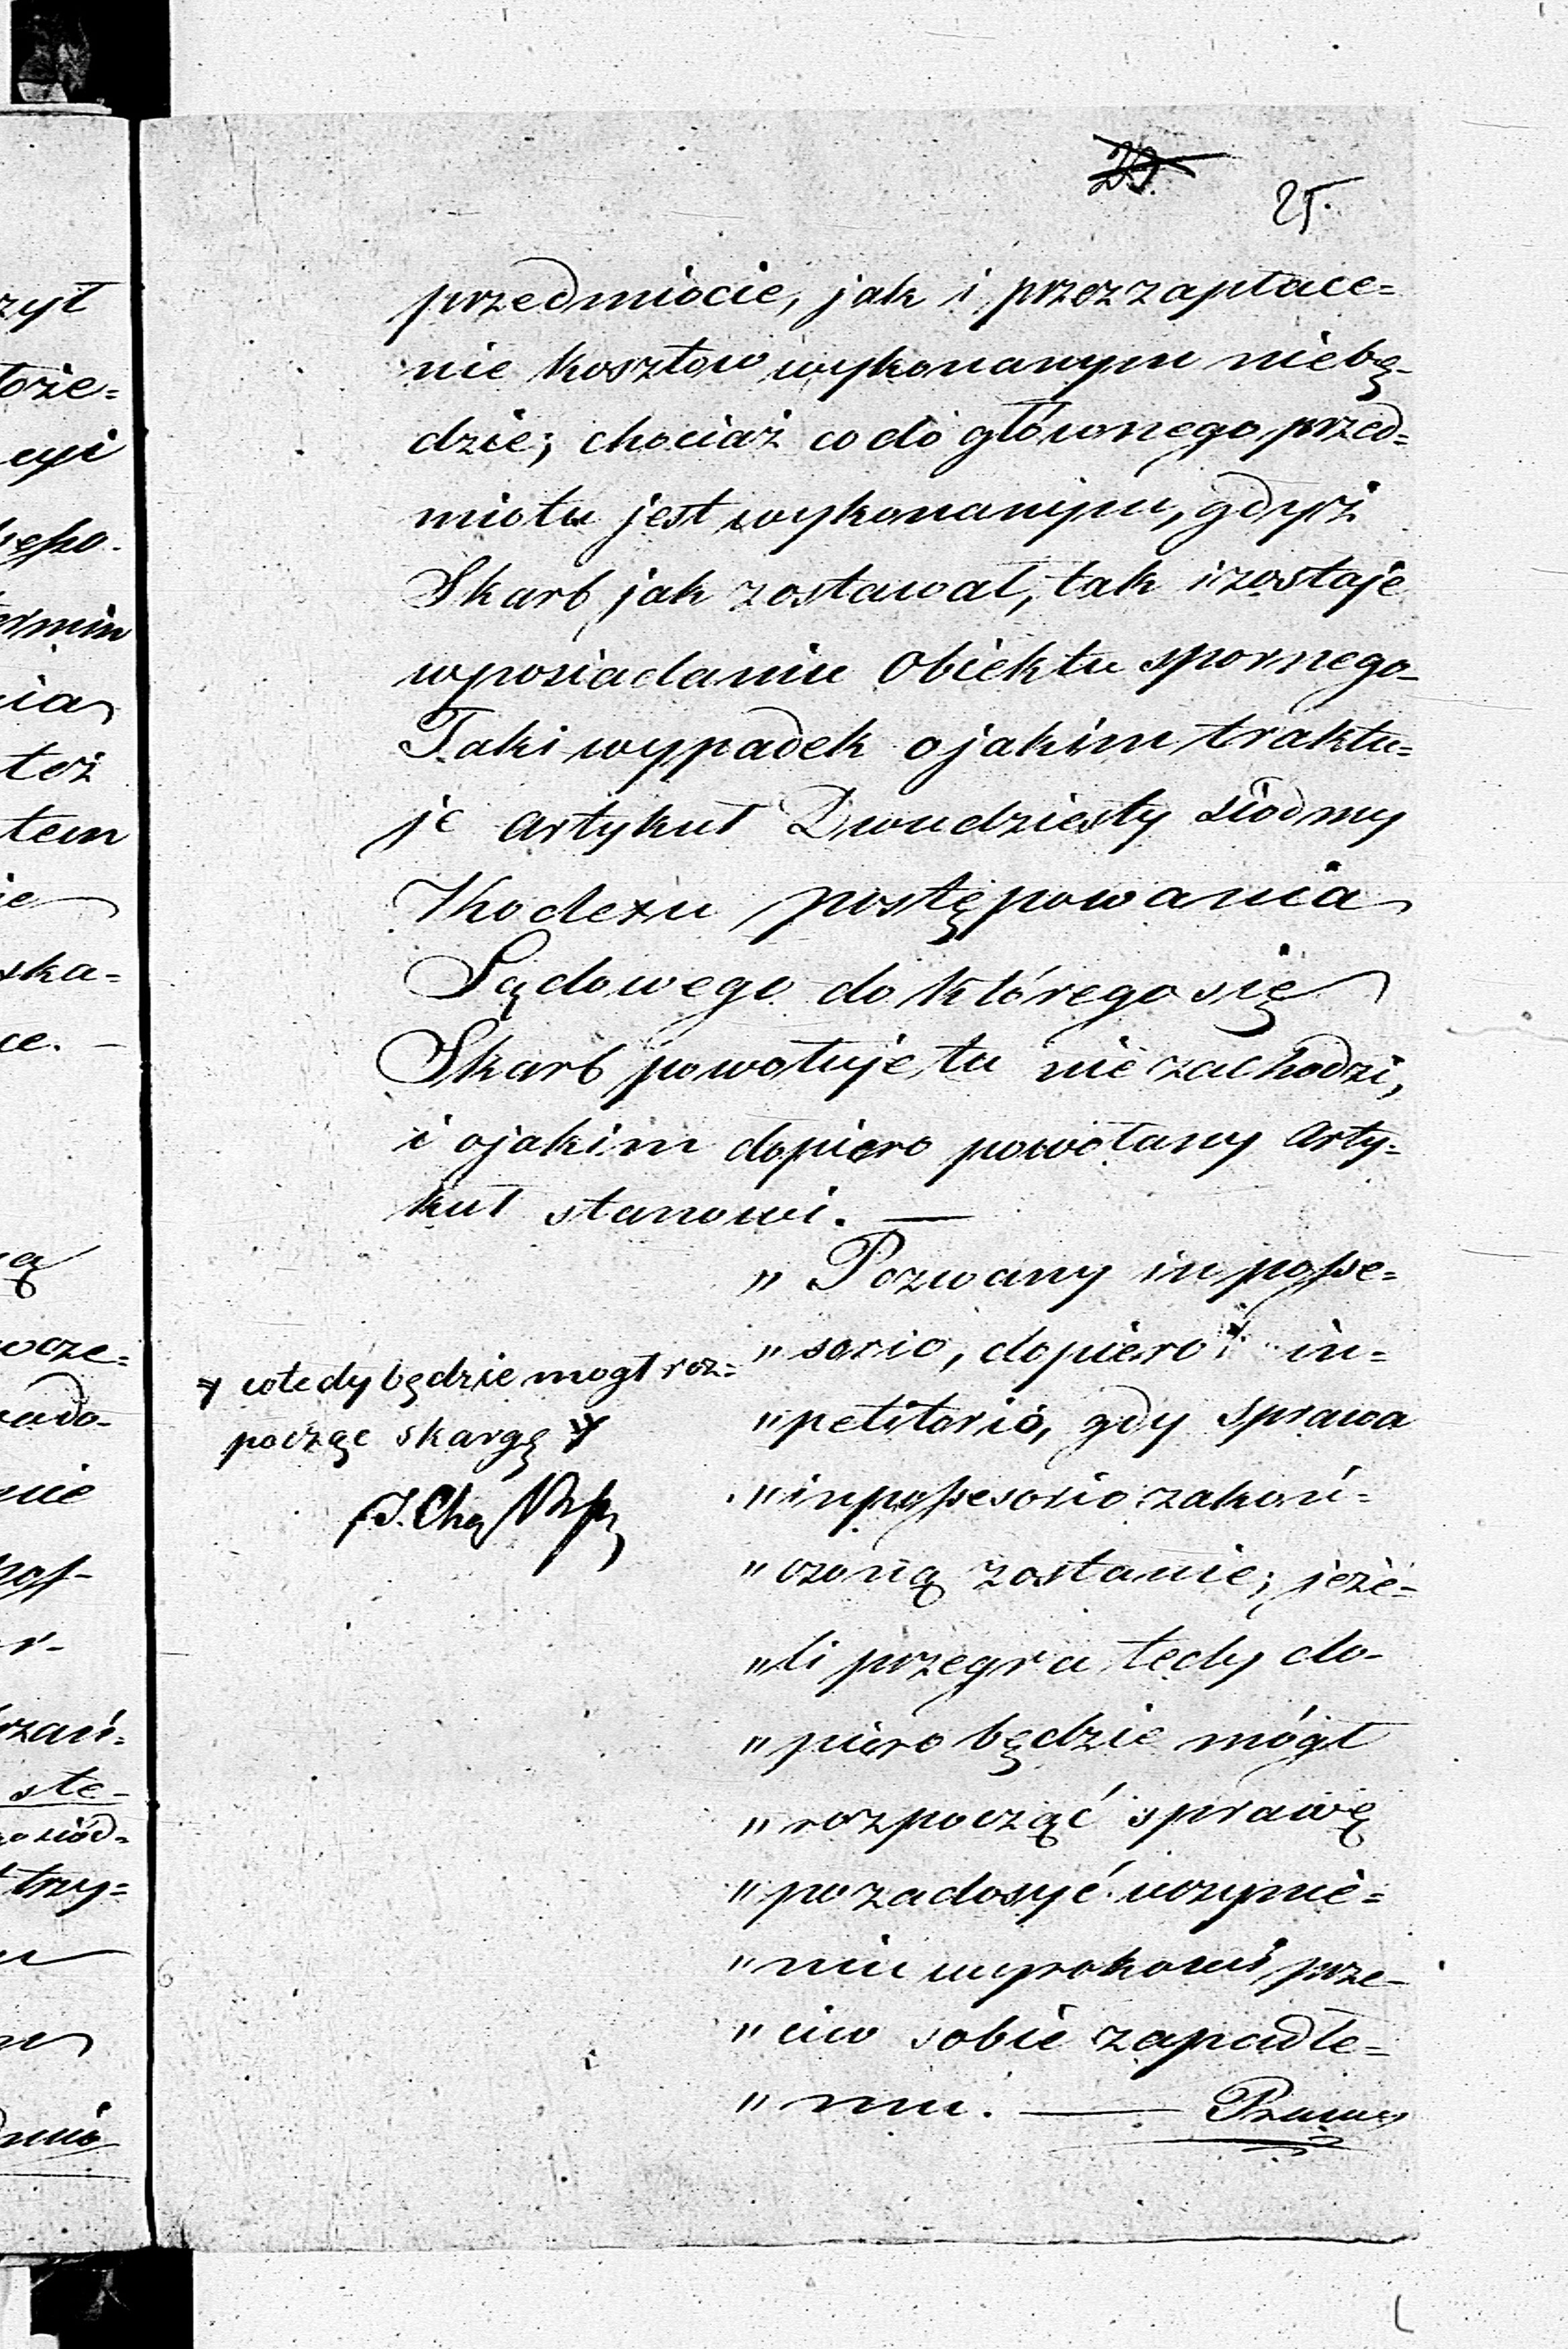 25.
przedmiocie, jak i przez zapłace=
nie kosztow wykonanym niebę-
dzie; chociaż co do głównego przed=
miotu jest wykonanym, gdyż
Skarb jak zostawał, tak i zostaje
w posiadaniu Obiektu spornego
Taki wypadek o jakim traktu=
je Artykuł Dwudziesty siódmy
Kodexu postępowania
Sądowego do którego się
Skarb powołuje tu nie zachodzi,
i o jakim dopiero powołany Arty=
kuł stanowi. —
„ Pozwany in posse=
„ sorio, dopiero in=
„ petitorio, gdy sprawa
„ in possesorio zakoń=
„ czoną zostanie; jeże=
„ li przegra tedy do-
„ piero będzie mógł
„ rozpocząć sprawę
„ po zadosyć uczynie=
„ niu wyrokowi prze-
„ ciw sobie zapadłe=
„ mu. — Prawo
wtedy będzie mogł roz=
począc skargę
zył
łoże=
cyi
ermin
nia
też
tem
ie
ska=
ce. —